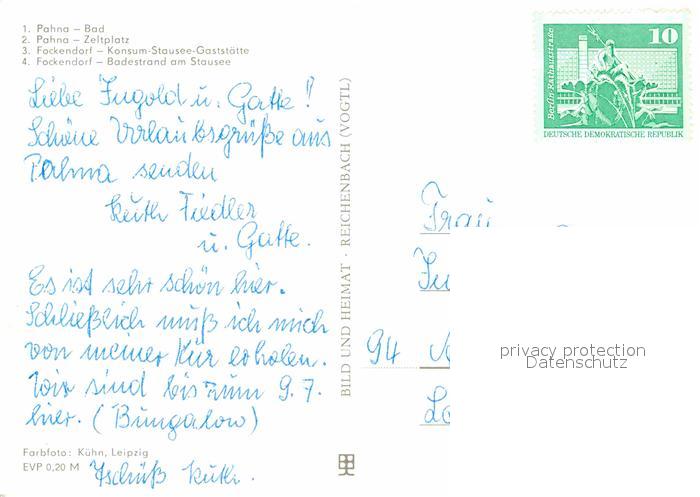 1. Pahna – Bad
2. Pahna – Zeltplatz
3. Fockendorf – Konsum-Stausee-Gaststätte
4. Fockendorf – Badestrand am Stausee
Liebe Ingold u. Gatte!
Schöne Urlaubsgrüße aus
Pahna senden
Ruth Fiedler
u. Gatte.
Es ist sehr schön hier.
Schließlich muß ich mich
von meiner Kur erholen.
Wir sind bis zum 9.7.
hier. (Bungalow)
Tschüß Ruth.
Farbfoto: Kühn, Leipzig
EVP 0,20 M
BILD UND HEIMAT · REICHENBACH (VOGTL)
Berlin Rathausstraße
10
DEUTSCHE DEMOKRATISCHE REPUBLIK
Frau
94
privacy protection
Datenschutz